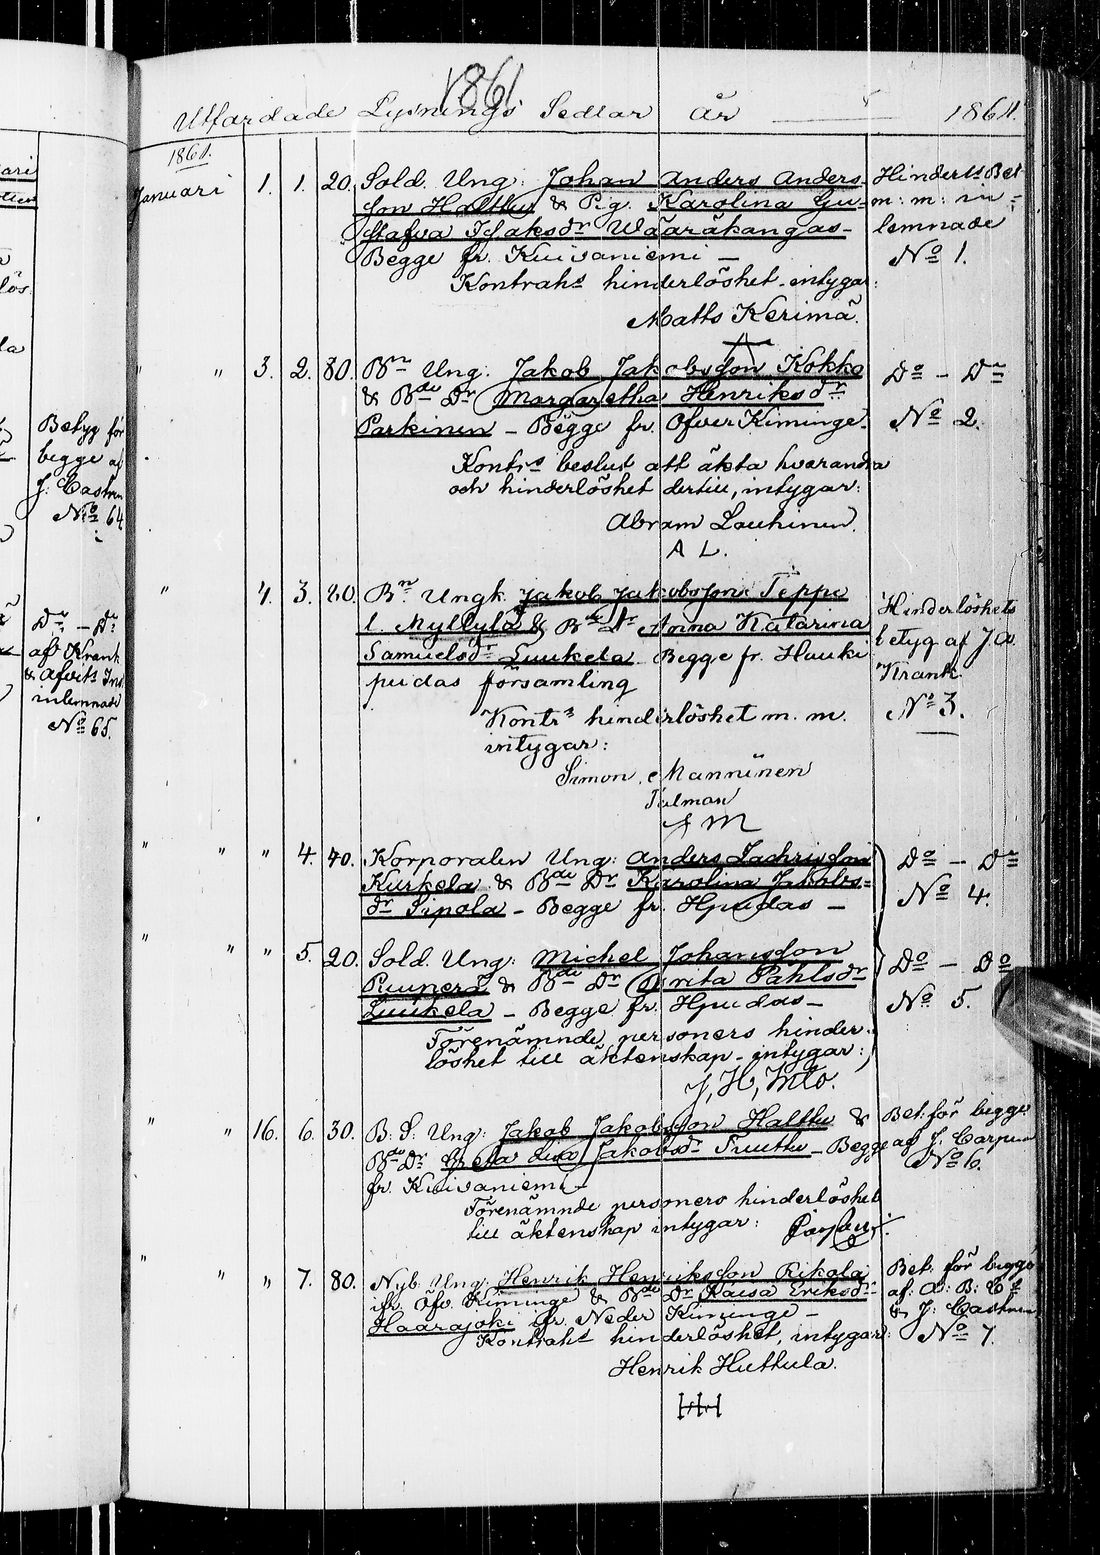 1861
Utfärdade Lysnings Sedlar år 1861.
1861.
Januari 1. 1. 20. Sold. Ung: Johan Anders Anders-
son Halttu & Pig. Karolina Gu-
stafva Isaksdr Wääräkangas-
Begge fr. Kuivaniemi —
Kontrahs hinderlöshet intygar:
Matts Kerimä.
Hinderls Bet
m: m: in-
lemnade
No 1.
" " 3. 2. 80. Bn Ung: Jakob Jakobsson Kokko
& Bde Dr Margaretha Henriksdr
Parkinen — Begge fr. Öfver Kiminge.
Kontrs beslut att äkta hvarandra
och hinderlöshet dertill, intygar:
Abram Laukinen.
A L.
Do — Do
No 2.
" 7. 3. 80. Bn Ungk. Jakob Jakobsson Teppo
l. Myllylä & Bde Dr Anna Katarina
Samuelsdr Luukela Begge fr. Hauki
pudas församling
Kontrs hinderlöshet m. m.
intygar:
Simon Manninen
Tolman
S M
Hinderlöshets
betyg af J A.
Krank
No 3.
" " " 4. 40. Korporalen Ung: Anders Zachrisson
Kurkela & Bde Dr Karolina Jakobs-
dr Sipola — Begge fr. Hpudas —
Do — Do
No 4.
" " " 5. 20. Sold. Ung: Michel Johansson
& Bde Dr Brita Påhlsdr
Luukela — Begge fr. Hpudas —
Förenämnde personers hinder-
löshet till äktenskap intygar:
Do — Do
No 5.
" " 16. 6. 30. B. S. Ung: Jakob Jakobsson Halttu &
Bde Dr Greta Lisa Jakobsdr Truuttu — Begge
fr. Kuivaniemi —
Förenämnde personers hinderlöshet
till äktenskap intygar:
Bet. för begge
af J. Carpen
No 6.
" " " 7. 80. Nyb. Ung: Henrik Henriksson Rikala
ifr. Öfv. Kiminge & Bde Dr Kaisa Eriksdr
Haarajoki ifr. Neder Kiminge —
Kontrahs hinderlöshet, intygar:
Henrik Huttula.
Bet. för begge
af: A: B:
& J: Castren
No 7.
Betyg för
begge af
J. Castren
No 64
Do — Do
af Krank
& Afvits
inlemnade
No 65.